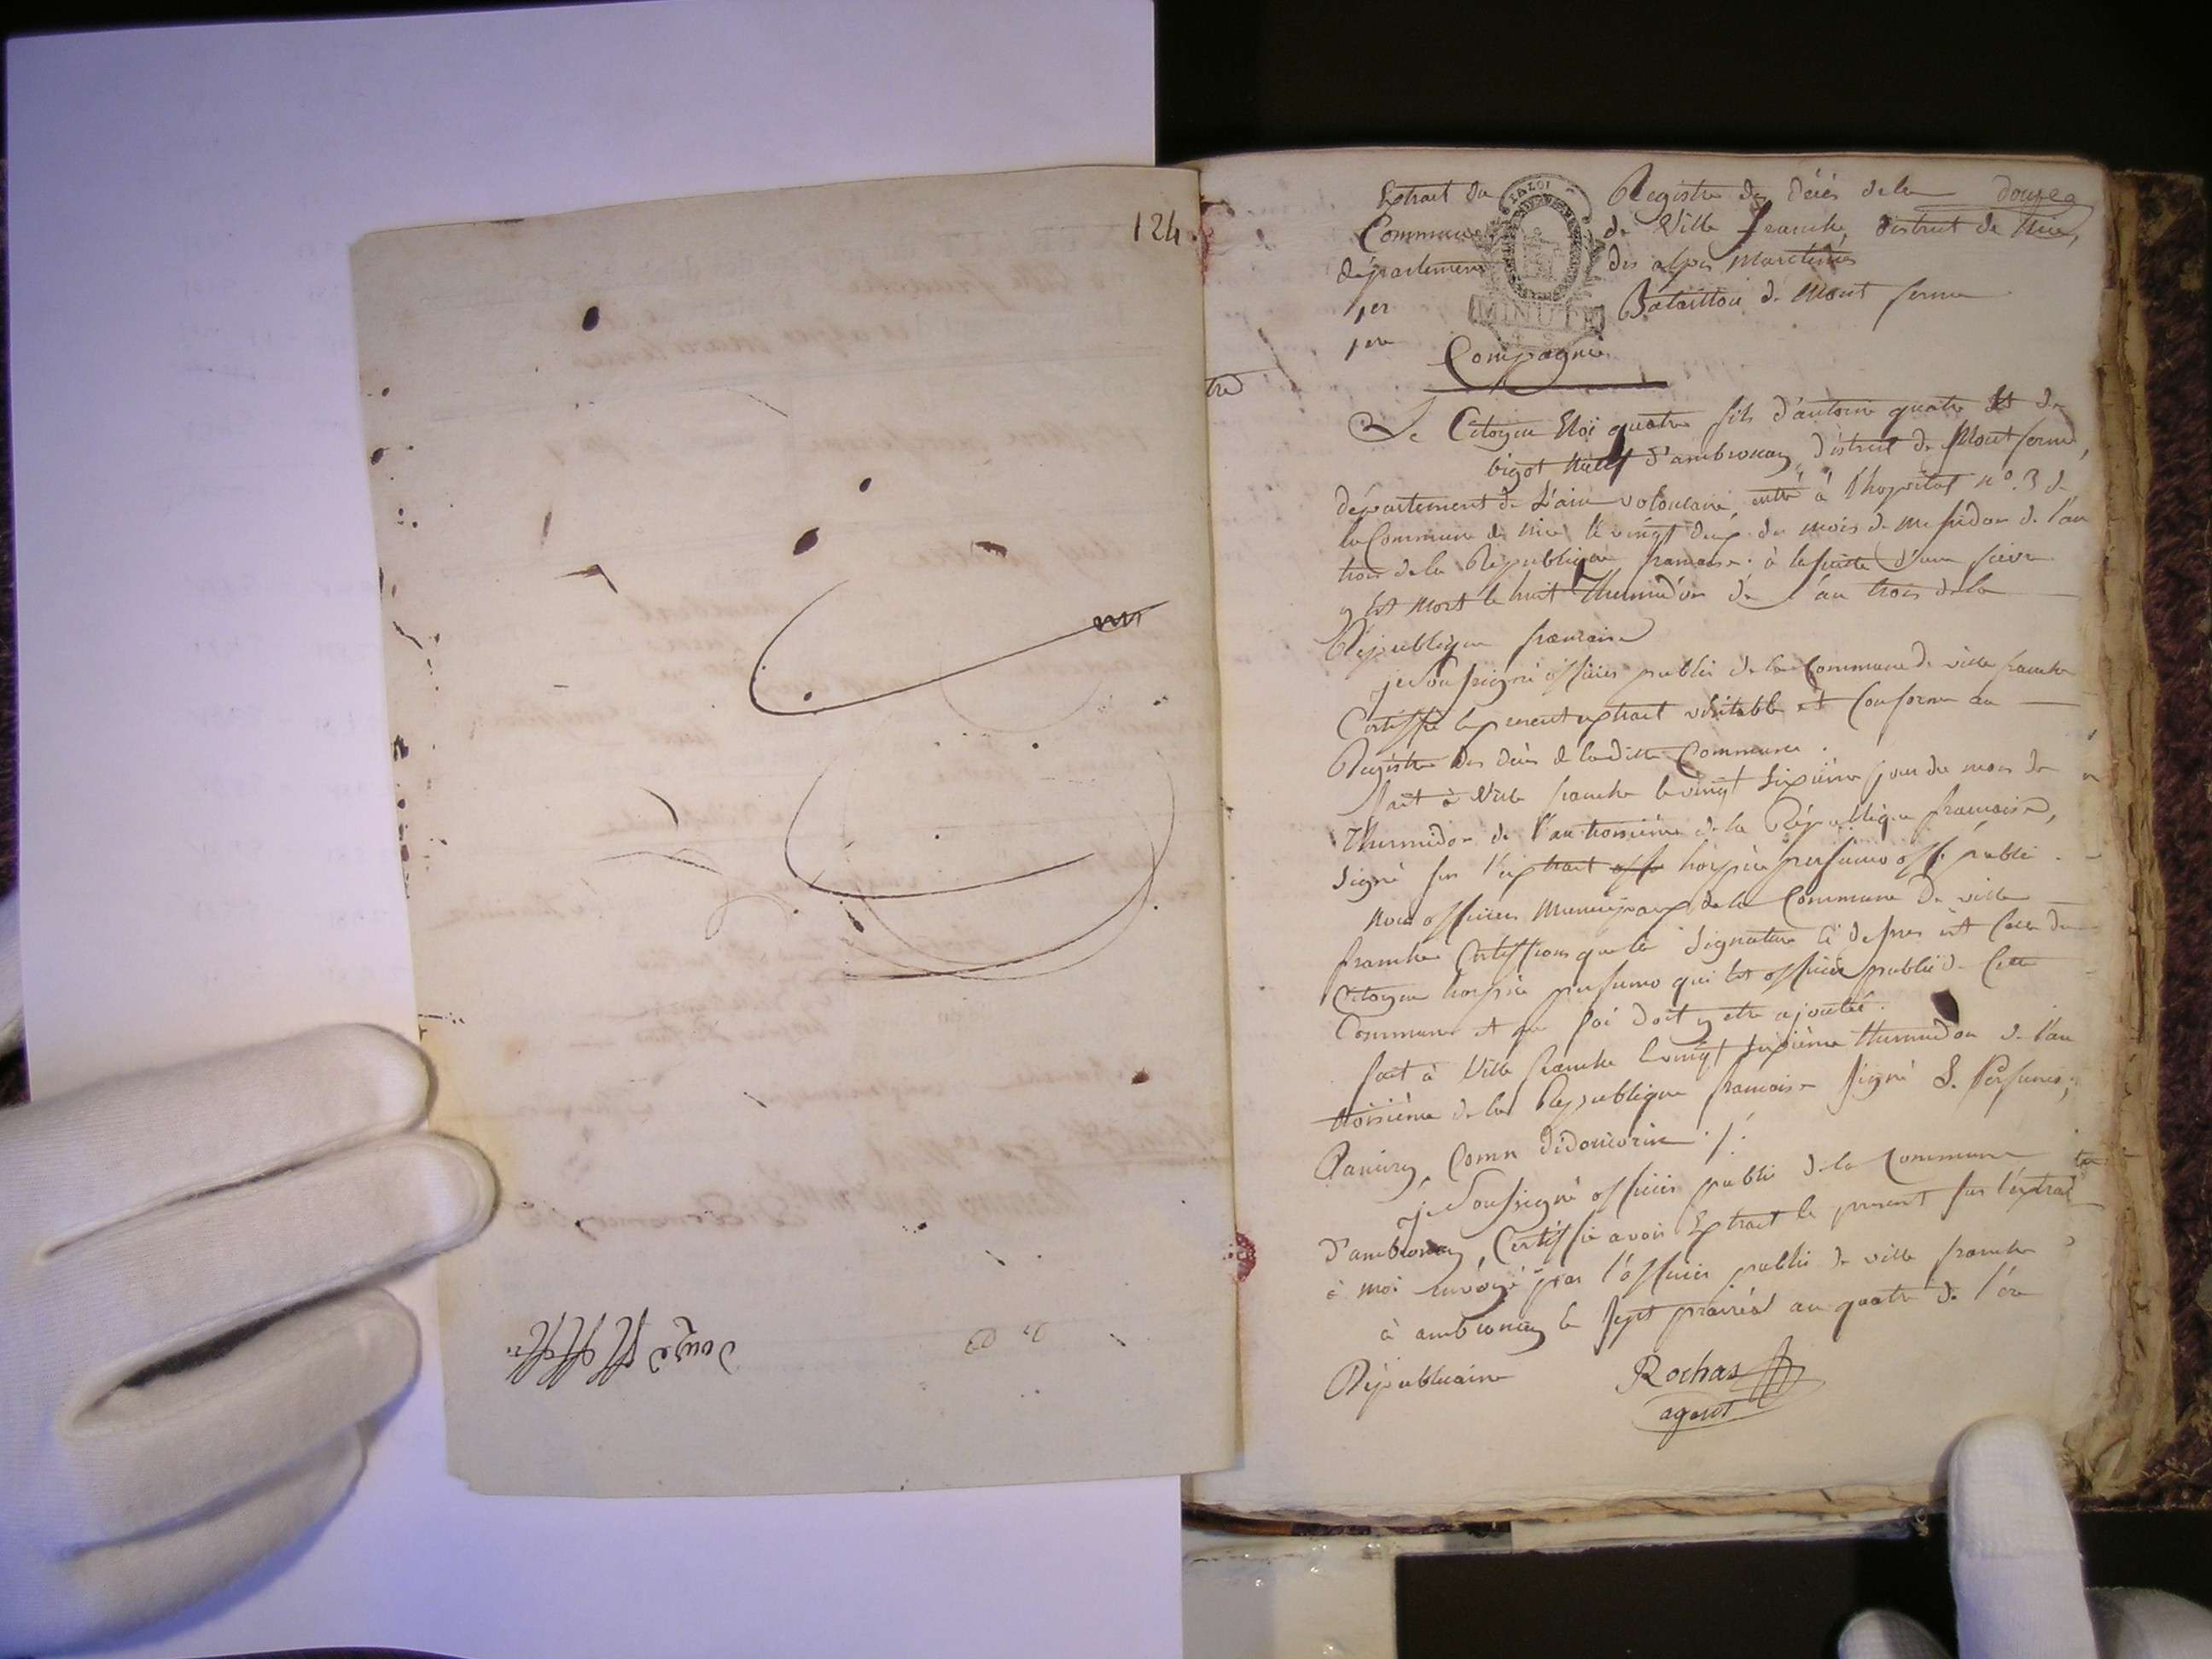 124.
Extrait du Registre des décès de la douzea
Commune de Ville franche, district de Nice,
département des alpes Maritimes
1er Bataillon de Mont ferme
1ere Compagnie
LA LOI
MINUTE
Le Citoyen Eloi quatre fils d'antoine quatre et de
bigot natif d'ambronay, district de Mont ferme,
département de L'ain volontaire, entré à l'hopital n° 3 de
la Commune de Nice le vingt deux du mois de Messidor de l'an
trois de la République francaise. à la suitte d'une fievre
y est mort le huit Thermidor de l'an trois de la
République francaise
je Soussigné officier public de la Commune de ville franche
Certiffie le present extrait véritable et Conforme au
Registre des décès de laditte Commune.
fait à Ville franche le vingt sixième jour du mois de
Thermidor de l'an troisième de la République francaise,
Signé sur l'extrait hospice perfumo off. public.
Nous officiers Municipaux de la Commune de ville
franche Certiffions que la Signature ci dessus est celle du
Citoyen hospice perfumo qui est officier public de Cette
Commune et que foi doit y etre ajoutée.
fait à Ville franche le vingt sixième thermidor de l'an
troisième de la République francaise Signé S. Perfumo,
je Soussigné officier public de la Commune
d'ambronay, Certiffie avoir Extrait le present sur l'extrait
à moi envoyé par l'officier public de ville franche
à ambronay le sept prairéal an quatre de l'ère
Républicaine Rochas
agent
douze